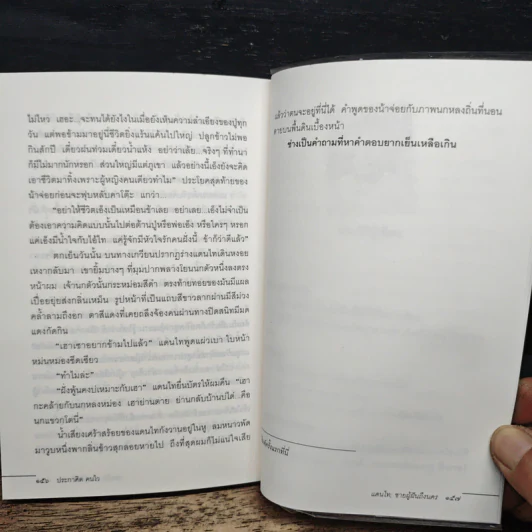 ไม่ไหว เฮอะ...จะทนได้ยังไงในเมื่อยังเห็นความลำเอียงของปู่ทุก
วัน แต่พอข้ามมาอยู่นี่ชีวิตยิ่งแร้นแค้นไปใหญ่ ปลูกข้าวไม่พอ
กินสักปี เดี๋ยวฝนท่วมเดี๋ยวน้ำแห้ง อย่าว่าเล้ย...จริงๆ ที่ทำนา
ก็มีไม่มากนักหรอก ส่วนใหญ่มีแต่ภูเขา แล้วอย่างนี้เอ็งยังจะคิด
เอาชีวิตมาทิ้งเพราะผู้หญิงคนเดียวทำไม" ประโยคสุดท้ายของ
น้าจ่อยก่อนจะฟุบหลับคาโต๊ะ แกว่า
"อย่าให้ชีวิตเอ็งเป็นเหมือนข้าเลย อย่าเลย...เอ็งไม่จำเป็น
ต้องเอาความคิดแบบนั้นไปต่อต้านปู่หรือพ่อเอ็ง หรือใครๆ หรอก
แค่เอ็งมีน้ำใจกับไอ้ไท แค่รู้จักมีหัวใจรักคนฝั่งนี้ ข้าก็ว่าดีแล้ว"
ตกเย็นวันนั้น บนทางเกวียนปรากฏร่างแดนไทเดินหงอย
เหงากลับมา เขายิ้มบางๆ ที่มุมปากพลางโยนนกตัวหนึ่งลงตรง
หน้าผม เจ้านกตัวนั้นกระหม่อมสีดำ ตรงท้ายทอยของมันมีแผล
เปื่อยยุ่ยส่งกลิ่นเหม็น รูปหน้าที่เป็นแถบสีขาวลากผ่านมีสีม่วง
คล้ำลามถึงอก ตาสีแดงที่เคยถลึงจ้องคนผ่านทางปิดสนิทมีมด
แดงกัดกิน
"เฮาเซาอยากข้ามไปแล้ว" แดนไทพูดแผ่วเบา ใบหน้า
หม่นหมองซีดเซียว
"ทำไมล่ะ"
"ฝั่งพู้นคงบ่เหมาะกับเฮา" แดนไทยื่นบัตรให้ผมคืน "เฮา
กะคล้ายกับนกหลงหม่อง เฮาย่านตาย ย่านกลับบ้านบ่ได้...คือ
นกแขวกโตนี่"
น้ำเสียงเศร้าสร้อยของแดนไทกังวานอยู่ในหู ลมหนาวพัด
มาวูบหนึ่งพากลิ่นข้าวสุกลอยหายไป ถึงที่สุดผมก็ไม่แน่ใจเสีย
๑๕๖ ประกาศิต คนไว
แล้วว่าตนจะอยู่ที่นี่ได้ คำพูดของน้าจ่อยกับภาพนกหลงถิ่นที่นอน
ตายบนพื้นดินเบื้องหน้า
ช่างเป็นคำถามที่หาคำตอบยากเย็นเหลือเกิน
แดนไท: ชายผู้ฝันถึงนคร ๑๕๗